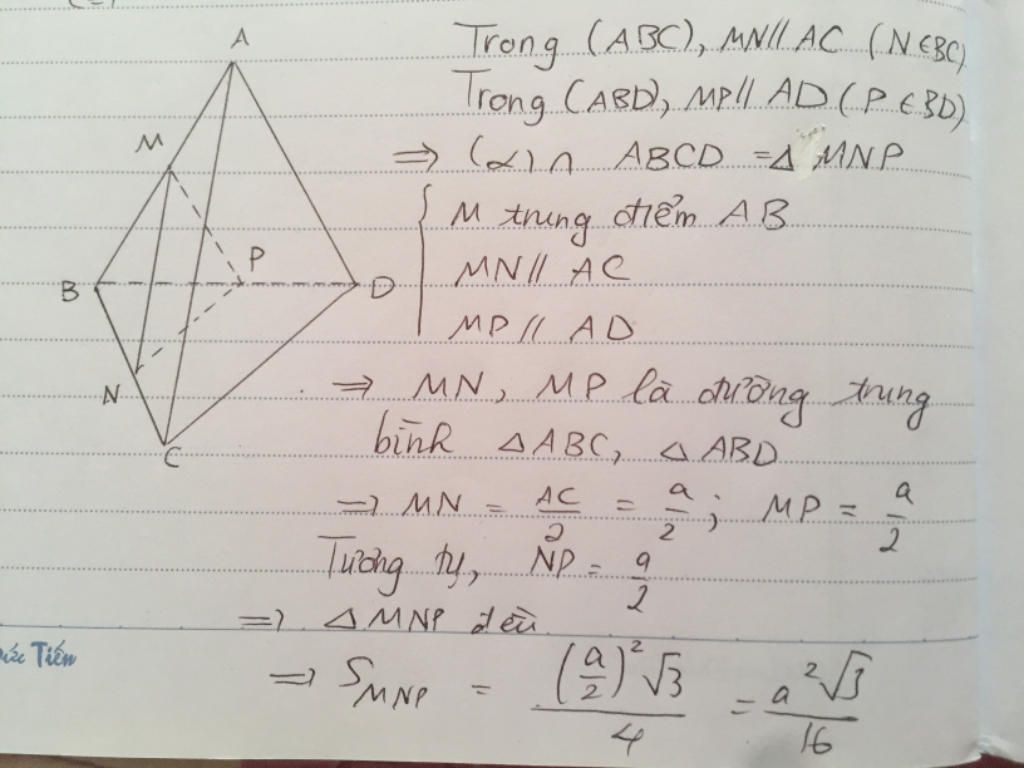 A
M
P
B
D
N
C
Trong (ABC), MN // AC (N ∈ BC)
Trong (ABD), MP // AD (P ∈ BD)
⇒ (α) ∩ ABCD = Δ MNP
M trung điểm AB
MN // AC
MP // AD
⇒ MN, MP là đường trung
bình Δ ABC, Δ ABD
⇒ MN = AC/2 = a/2 ; MP = a/2
Tương tự, NP = a/2
⇒ Δ MNP đều
Tiến
⇒ S_MNP = (a/2)²√3/4 = a²√3/16